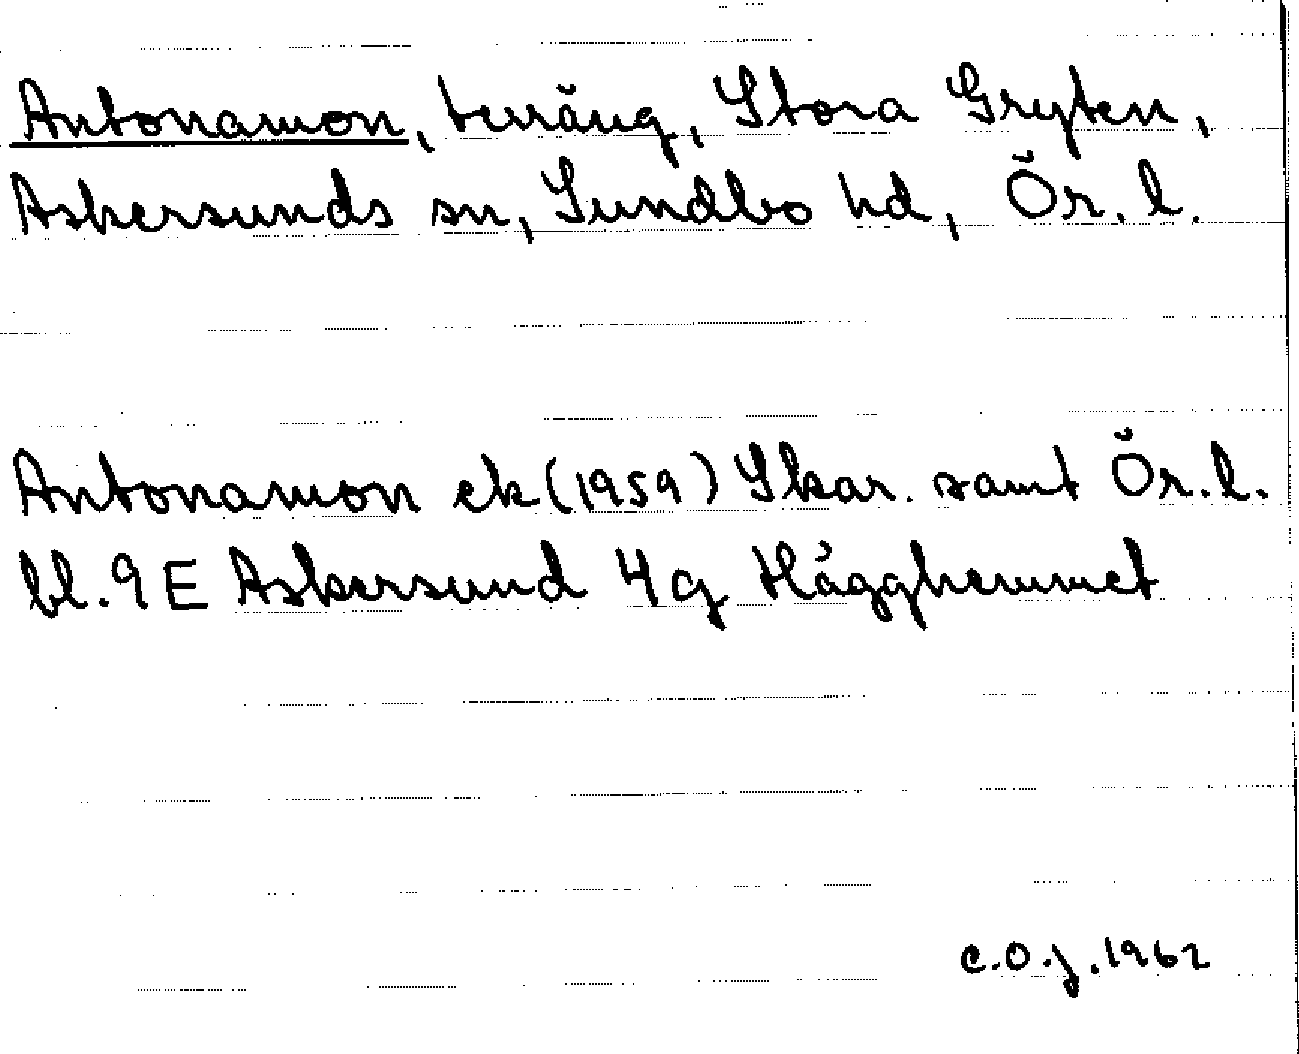 Antonamon, terräng, Stora Gryten,
Askersunds sn, Sundbo hd, Ör. l.
Antonamon ek (1959) Skar. samt Ör. l.
bl. 9 E Askersund 4 g Hägghemmet
C.O.J. 1962